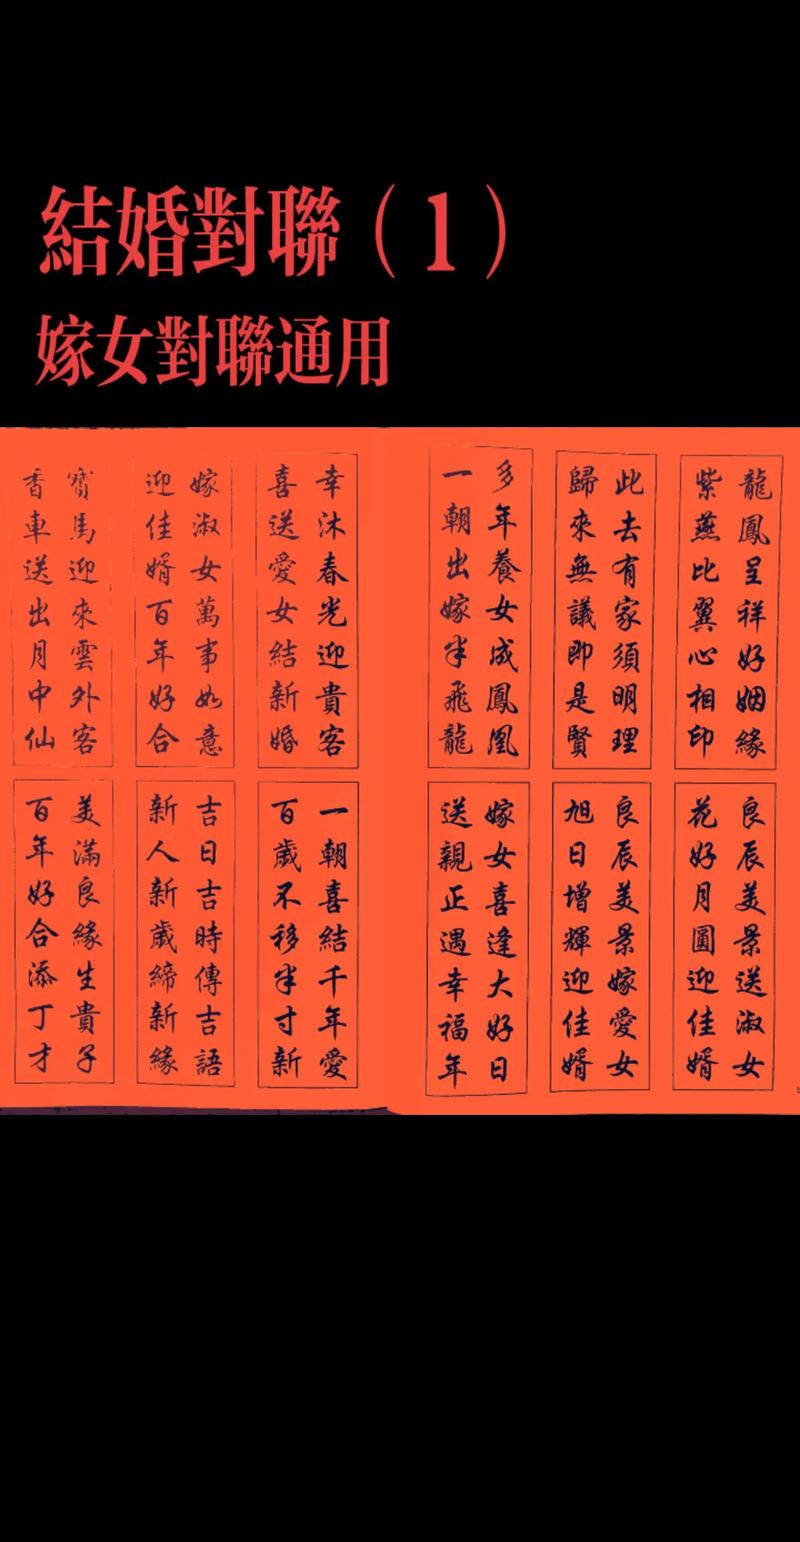 結婚對聯（1）
嫁女對聯通用
龍鳳呈祥好姻緣
紫燕比翼心相印
此去有家須明理
歸來無議即是賢
多年養女成鳳凰
一朝出嫁半飛龍
幸沐春光迎貴客
喜送愛女結新婚
嫁淑女萬事如意
迎佳婿百年好合
寶馬迎來雲外客
香車送出月中仙
良辰美景送淑女
花好月圓迎佳婿
良辰美景嫁愛女
旭日增輝迎佳婿
嫁女喜逢大好日
送親正遇幸福年
一朝喜結千年愛
百歲不移半寸新
吉日吉時傳吉語
新人新歲締新緣
美滿良緣生貴子
百年好合添丁才